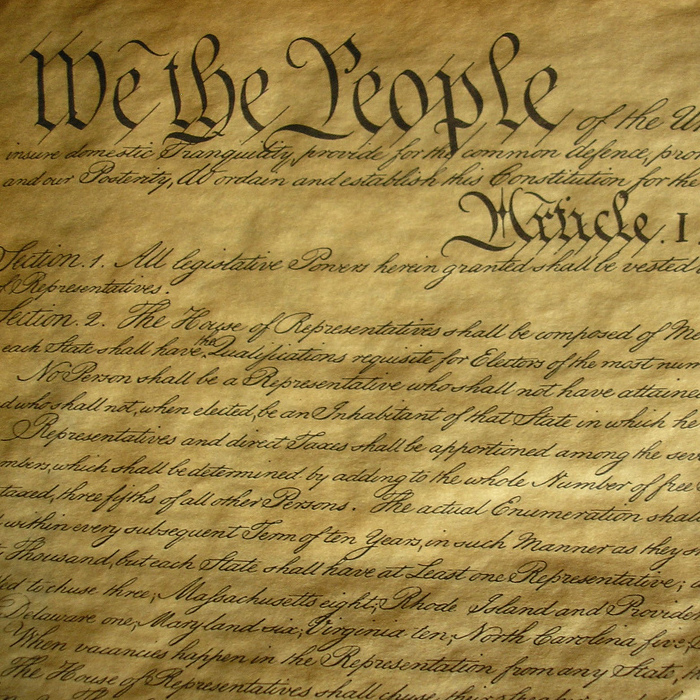 We the People of the U
insure domestic Tranquility, provide for the common defence, pro
and our Posterity, do ordain and establish this Constitution for the
Article. I
Section. 1. All legislative Powers herein granted shall be vested
of Representatives.
Section. 2. The House of Representatives shall be composed of Me
each State shall have the Qualifications requisite for Electors of the most num
No Person shall be a Representative who shall not have attained
d who shall not, when elected, be an Inhabitant of that State in which he
Representatives and direct Taxes shall be apportioned among the sev
mbers, which shall be determined by adding to the whole Number of free
taxed, three fifths of all other Persons. The actual Enumeration shall
within every subsequent Term of ten Years, in such Manner as they s
Thousand, but each State shall have at Least one Representative; a
ed to chuse three, Massachusetts eight, Rhode Island and Providen
Delaware one, Maryland six, Virginia ten, North Carolina five,
When vacancies happen in the Representation from any State,
The House of Representatives shall chuse their